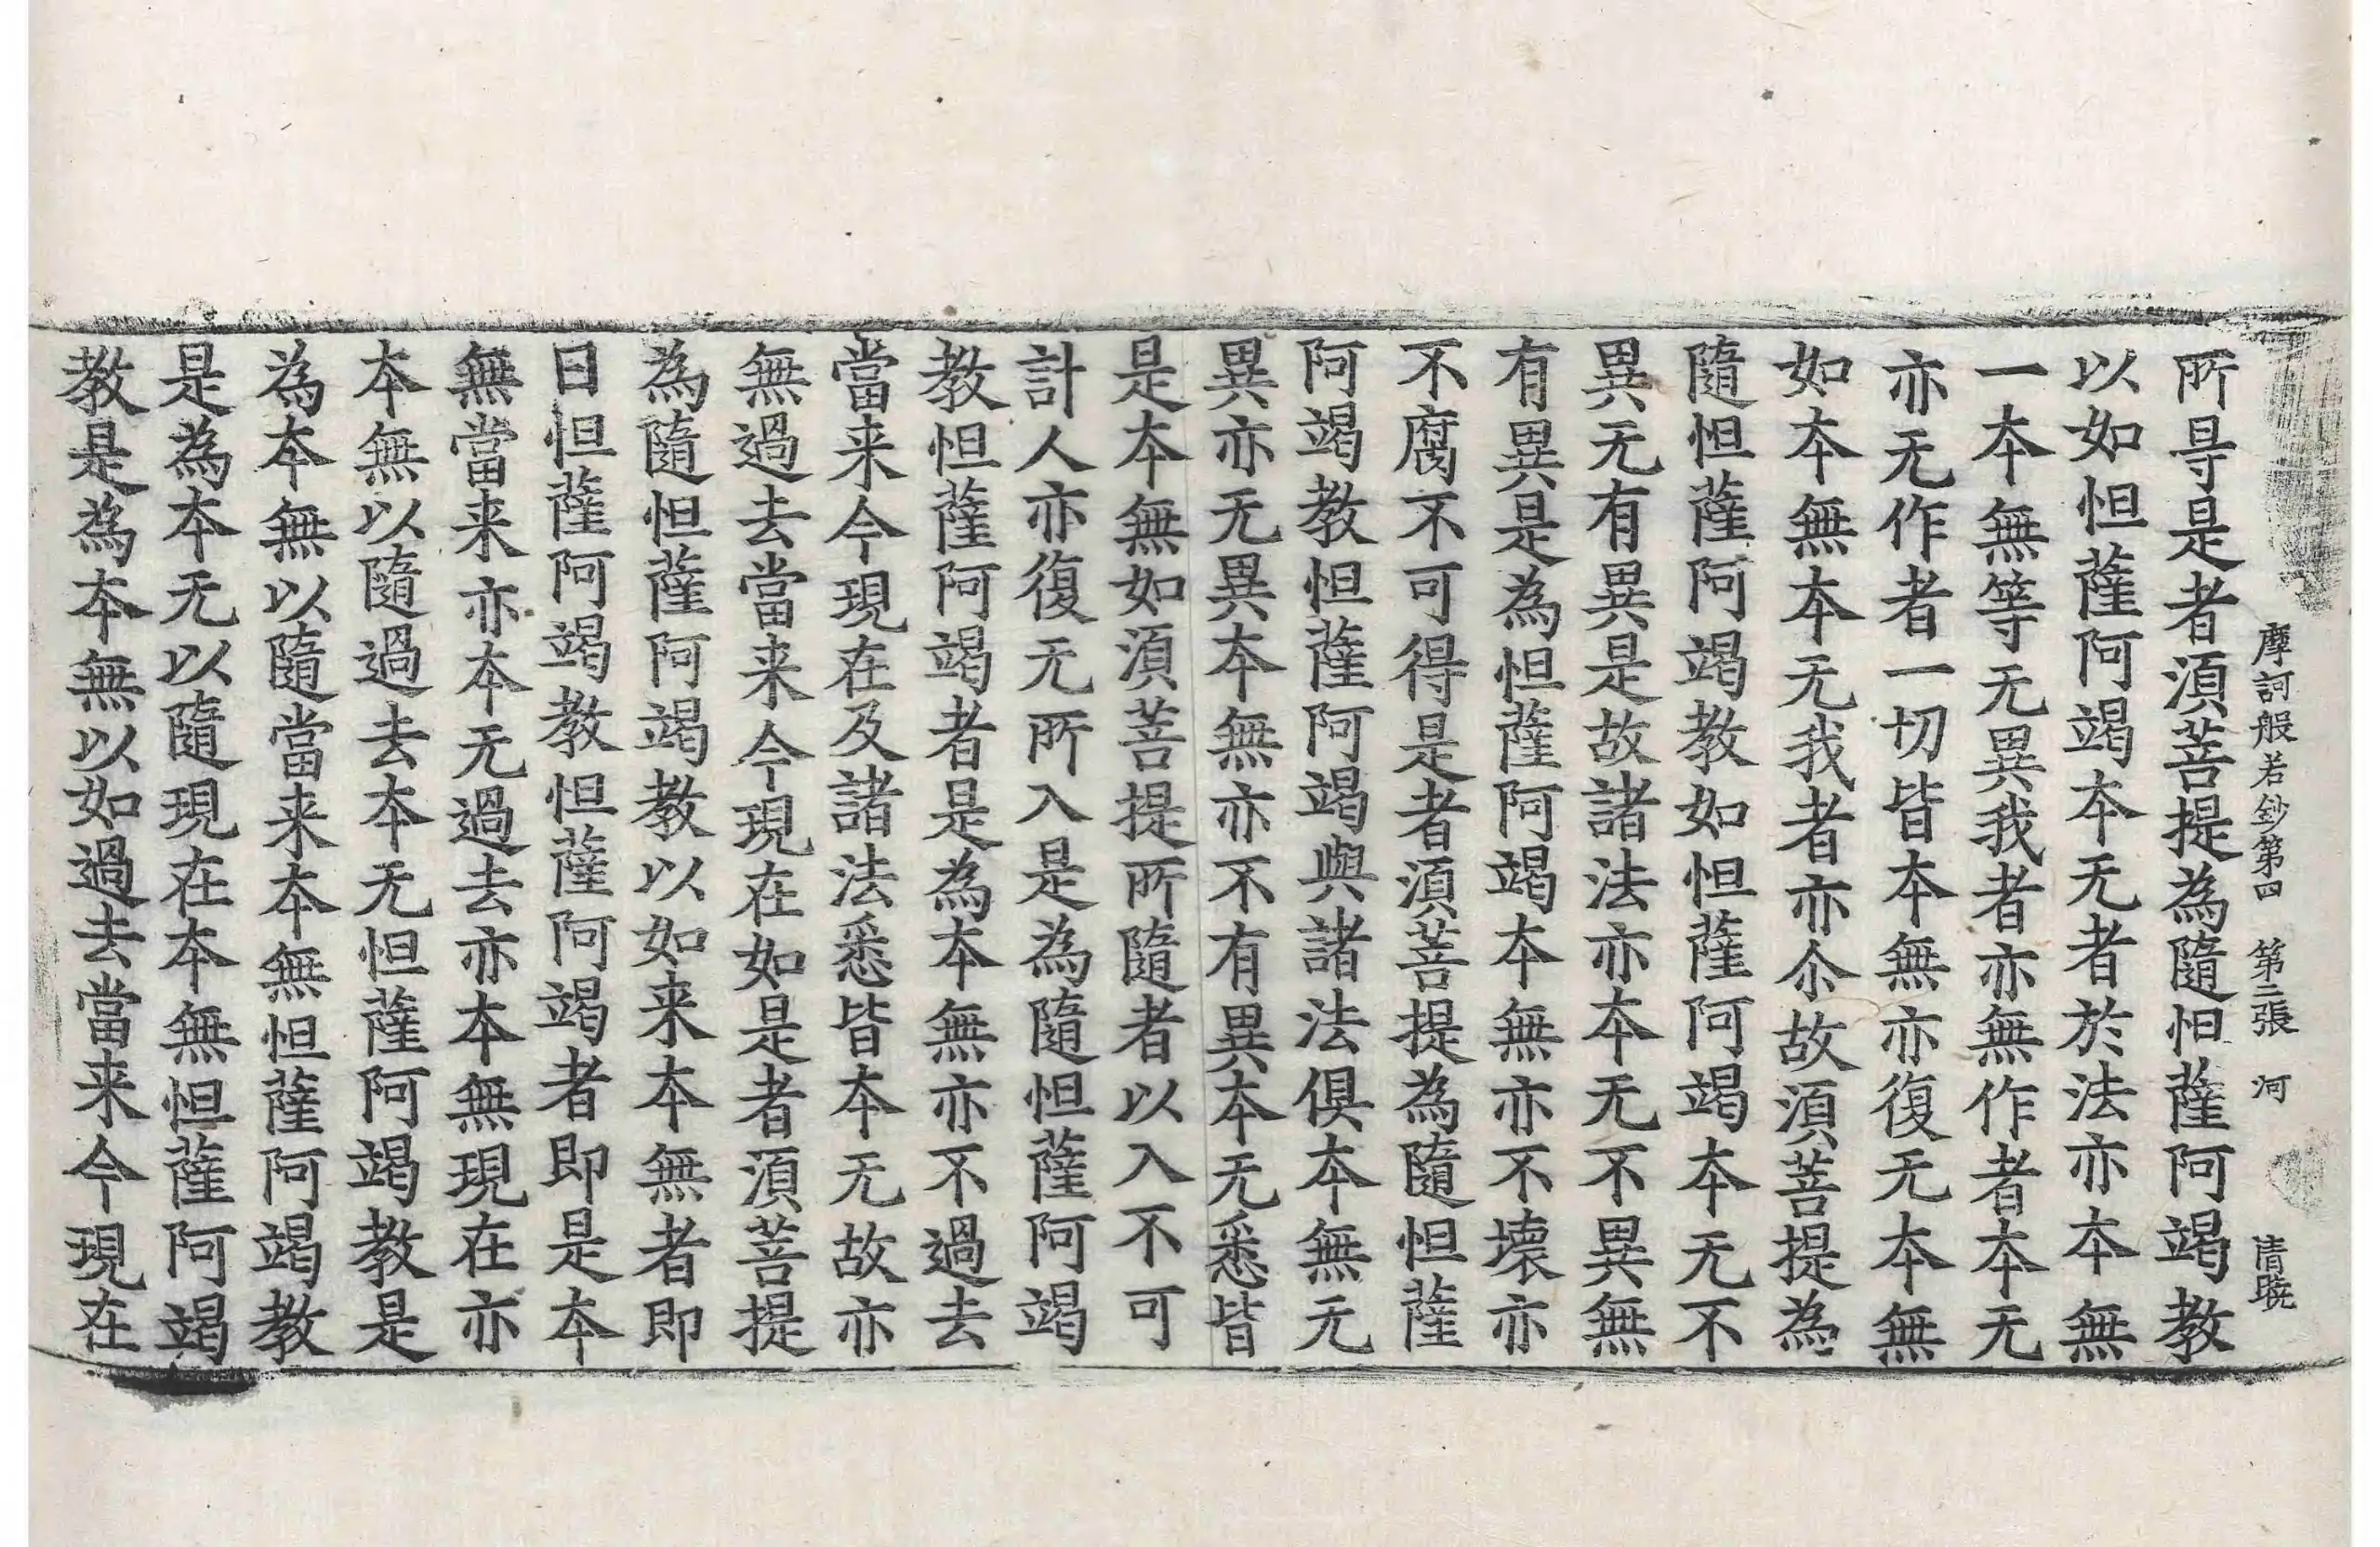 摩訶般若鈔第四　第二張　河　清曉
所㝵是者湏菩提為隨怛薩阿竭教
以如怛薩阿竭本无者於法亦本無
一本無等无異我者亦無作者本无
亦无作者一切皆本無亦復无本無
如本無本无我者亦尒故湏菩提為
隨怛薩阿竭教如怛薩阿竭本无不
異无有異是故諸法亦本无不異無
有異是為怛薩阿竭本無亦不壞亦
不腐不可得是者湏菩提為隨怛薩
阿竭教怛薩阿竭與諸法俱本無无
異亦无異本無亦不有異本无悉皆
是本無如湏菩提所隨者以入不可
計人亦復无所入是為隨怛薩阿竭
教怛薩阿竭者是為本無亦不過去
當来今現在及諸法悉皆本无故亦
無過去當来今現在如是者湏菩提
為隨怛薩阿竭教以如来本無者即
曰怛薩阿竭教怛薩阿竭者即是本
無當来亦本无過去亦本無現在亦
本無以隨過去本无怛薩阿竭教是
為本無以隨當来本無怛薩阿竭教
是為本无以隨現在本無怛薩阿竭
教是為本無以如過去當来今現在